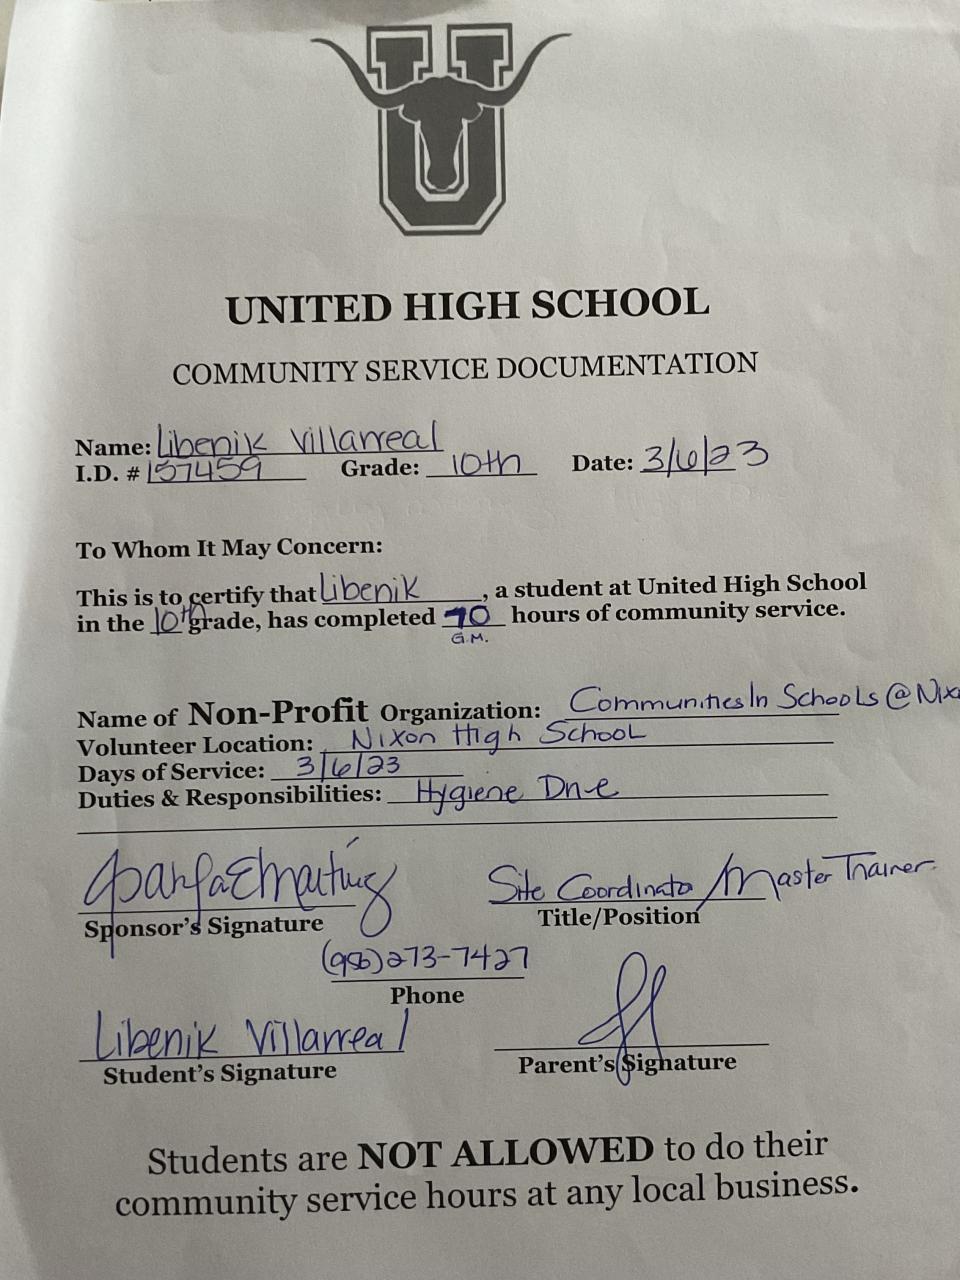 U
UNITED HIGH SCHOOL
COMMUNITY SERVICE DOCUMENTATION
Name: Libenik Villarreal
I.D. # 157459 Grade: 10th Date: 3/6/23
To Whom It May Concern:
This is to certify that Libenik, a student at United High School
in the 10th grade, has completed 70 hours of community service.
G.M.
Name of Non-Profit Organization: Communities In Schools @
Volunteer Location: Nixon High School
Days of Service: 3/6/23
Duties & Responsibilities: Hygiene Drive
Sponsor's Signature
Site Coordinator/Master Trainer
Title/Position
(956)273-7427
Phone
Libenik Villarreal
Student's Signature
Parent's Signature
Students are NOT ALLOWED to do their
community service hours at any local business.